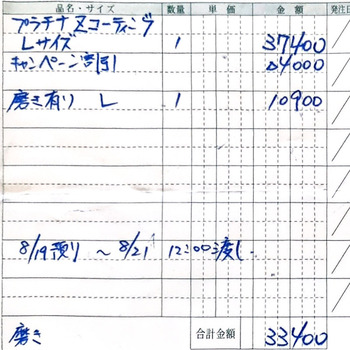 品名・サイズ 数量 単価 金額 発注日
プラチナZコーティング
Lサイズ 1 37400
キャンペーン割引 △4000
磨き有り L 1 10900
8/19預り 〜 8/21 12:00渡し
磨き 合計金額 33400